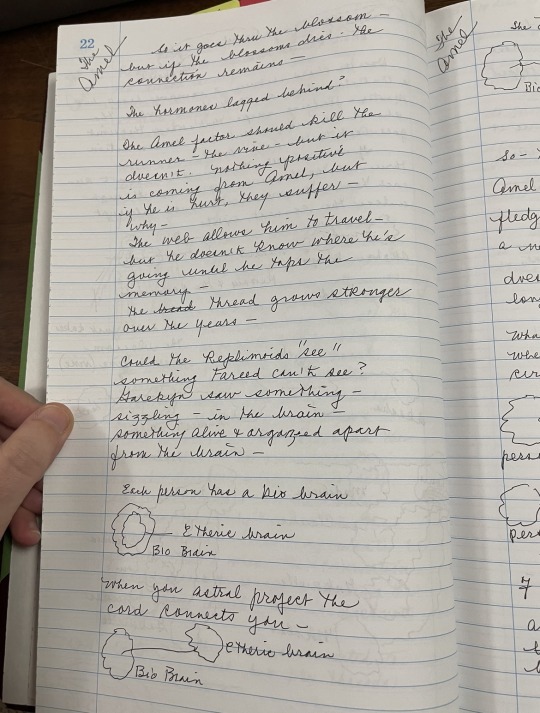 22
The
Amel
So it goes thru the blossom –
but if the blossoms dies. The
connection remains –
The hormones lagged behind?
The Amel factor should kill the
runner – the vine – but it
doesn't. Nothing positive
is coming from Amel, but
if he is hurt, they suffer –
why –
The web allows him to travel –
but he doesn't know where he's
going until he taps the
memory –
The thread grows stronger
over the years –
Could the Replimoids "see"
something Fareed can't see?
Garekyn saw something –
sizzling – in the brain –
something alive & organized apart
from the brain –
Each person has a bio brain
Etheric brain
Bio Brain
When you astral project the
cord connects you –
etheric brain
Bio Brain
The
Amel
The
Bio
So –
Amel
fledg
a
does
long
Wha
whe
cir
pers
pers
7
a